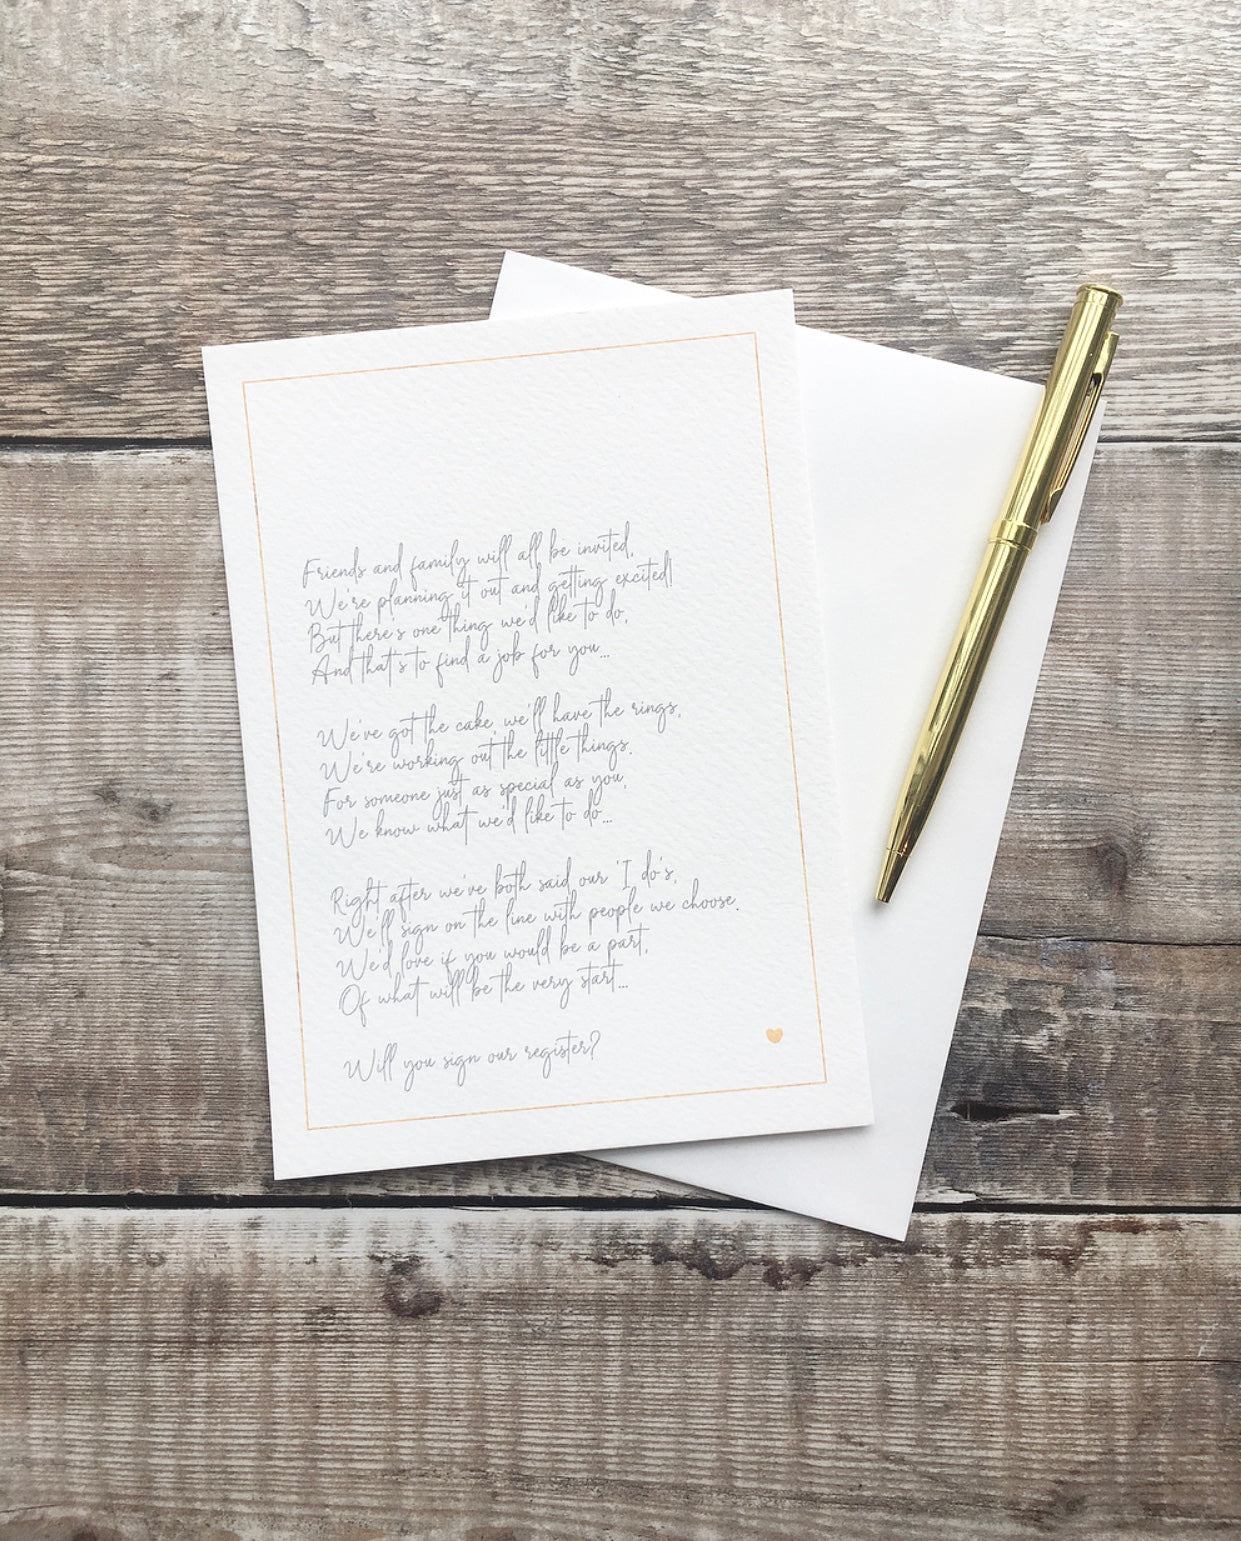 Friends and family will all be invited,
We're planning it out and getting excited!
But there's one thing we'd like to do,
And that's to find a job for you...
We've got the cake, we'll have the rings,
We're working out the little things.
For someone just as special as you,
We know what we'd like to do...
Right after we've both said our 'I do's,
We'll sign on the line with people we choose.
We'd love if you would be a part,
Of what will be the very start...
Will you sign our register?